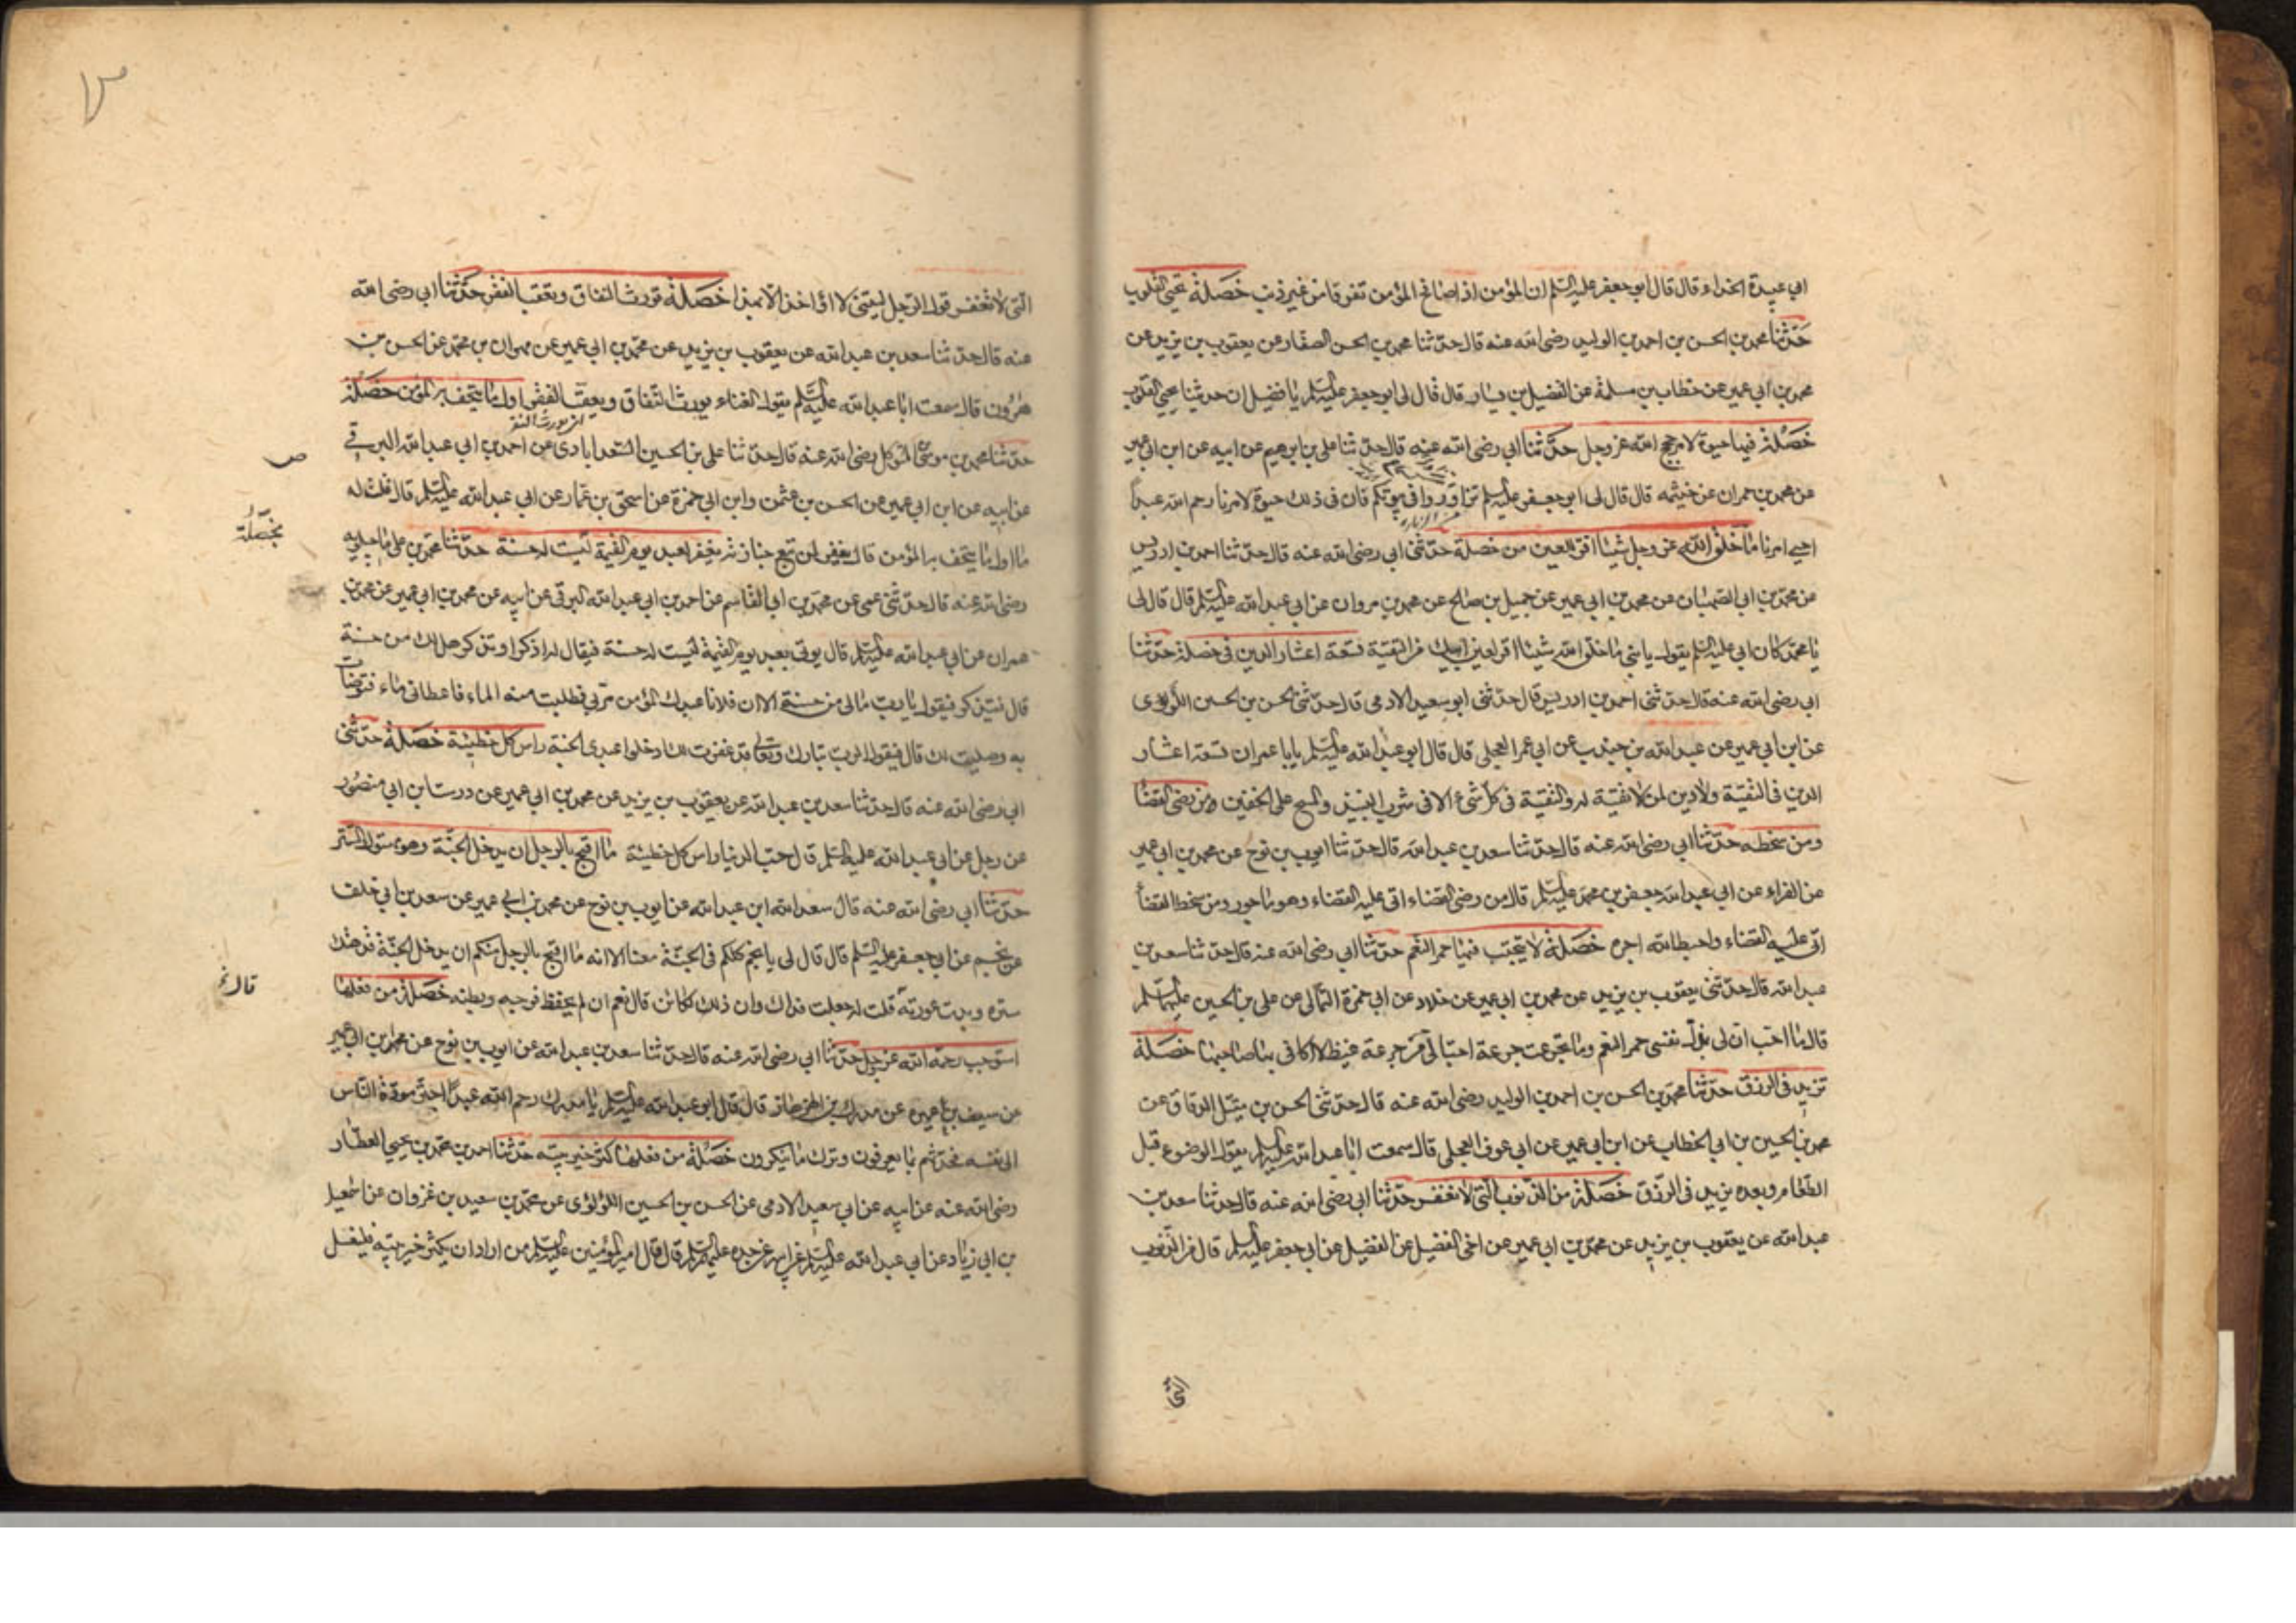 ابي عبيدة الحذاء قال قال ابو جعفر عليه السلم ان المؤمن اذا صافح المؤمن تفرقا من غير ذنب خصلة تحيي القلوب
حدثنا محمد بن الحسن بن احمد بن الوليد رضى الله عنه قال حدثنا محمد بن الحسن الصفار عن يعقوب بن يزيد عن
محمد بن ابي عمير عن خطاب بن مسلمة عن الفضيل بن يسار قال قال لى ابو جعفر عليه السلم يا فضيل ان حديثنا يحيي القلوب
خصلة فيها حيوة لامر حجج الله عز وجل حدثنا ابي رضى الله عنه قال حدثنا على بن ابرهيم عن ابيه عن ابن ابي عمير
عن محمد بن حمران عن خيثمه قال قال لى ابو جعفر عليه السلم تزاوروا في بيوتكم فان فى ذلك حيوة لامرنا رحم الله عبدا
احيى امرنا ما خلق الله عز وجل شيئا اقر للعين من خصلة حدثنى ابي رضى الله عنه قال حدثنا احمد بن ادريس
عن محمد بن ابي الصهبان عن محمد بن ابي عمير عن جميل بن صالح عن محمد بن مروان عن ابي عبد الله عليه السلم قال قال لى
يا محمد كان ابي عليه السلم يقول يا بني ما خلق الله شيئا اقر لعين ابيك من التقية تسعة اعشار الدين فى خصلة حدثنا
ابي رضى الله عنه قال حدثنى احمد بن ادريس قال حدثنى ابو سعيد الادمى قال حدثنى الحسن بن الحسين اللؤلؤى
عن ابن ابي عمير عن عبد الله بن جندب عن ابي عمر العجلى قال قال ابو عبد الله عليه السلم يا با عمران تسعة اعشار
الدين فى التقية ولا دين لمن لا تقية له والتقية فى كل شىء الا فى شرب النبيذ والمسح على الخفين من رضى القضا
ومن سخطه حدثنا ابي رضى الله عنه قال حدثنا سعد بن عبد الله قال حدثنا ايوب بن نوح عن محمد بن ابي عمير
عن الفراء عن ابي عبد الله جعفر بن محمد عليه السلم قال من رضى القضاء اتى عليه القضاء وهو ماجور ومن سخط القضا
اتى عليه القضاء واحبط الله اجره خصلة لا يحب فيها حمر النعم حدثنا ابي رضى الله عنه قال حدثنا سعد بن
عبد الله قال حدثنى يعقوب بن يزيد عن محمد بن ابي عمير عن خلاد عن ابي حمزة الثمالى عن على بن الحسين عليهما السلم
قال ما احب ان لى بذل نفسى حمر النعم وما تجرعت جرعة احب الى من جرعة غيظ لا اكافى بها صاحبها خصلة
تزيد فى الرزق حدثنا محمد بن الحسن بن احمد بن الوليد رضى الله عنه قال حدثنى الحسن بن متيل الدقاق عن
محمد بن الحسين بن ابي الخطاب عن ابن ابي عمير عن ابي عوف العجلى قال سمعت ابا عبد الله عليه السلم يقول الوضوء قبل
الطعام وبعده يزيد فى الرزق خصلة من الذنوب التى لا تغفر حدثنا ابي رضى الله عنه قال حدثنا سعد بن
عبد الله عن يعقوب بن يزيد عن محمد بن ابي عمير عن اخى الفضيل عن الفضيل عن ابي جعفر عليه السلم قال من الذنوب
التى
التى لا تغفر قول الرجل ليتنى لا اؤاخذ الا بهذا خصلة تورث النفاق وتعقب الفقر حدثنا ابي رضى الله
عنه قال حدثنا سعد بن عبد الله عن يعقوب بن يزيد عن محمد بن ابي عمير عن مهران بن محمد عن الحسن بن
هرون قال سمعت ابا عبد الله عليه السلم يقول الغناء يورث النفاق ويعقب الفقر اول ما يتحف به المؤمن خصلة
حدثنا محمد بن موسى المتوكل رضى الله عنه قال حدثنا على بن الحسين السعدابادى عن احمد بن ابي عبد الله البرقي
عن ابيه عن ابن ابي عمير عن الحسن بن عثمن وابن ابي حمزة عن اسحق بن عمار عن ابي عبد الله عليه السلم قال قلت له
ما اول ما يتحف به المؤمن قال يغفر لمن تبع جنازته يغفر لعبد يوم القيمة ليست له حسنة حدثنا محمد بن على ماجيلويه
بخصلة
رضى الله عنه قال حدثنى عمى عن محمد بن ابي القاسم عن احمد بن ابي عبد الله البرقى عن ابيه عن محمد بن ابي عمير عن محمد بن
حمران عن ابي عبد الله عليه السلم قال يوتى بعبد يوم القيمة ليست له حسنة فيقال له اذكر او تذكر هل لك من حسنة
قال فيتذكر فيقول يا رب مالى من حسنة الا ان فلانا عبدك المؤمن مر بى فطلبت منه الماء فاعطانى ماء فتوضات
به وصليت لك قال فيقول الرب تبارك وتعالى قد غفرت لك ادخلوا عبدى الجنة راس كل خطيئة خصلة حدثنى
ابي رضى الله عنه قال حدثنا سعد بن عبد الله عن يعقوب بن يزيد عن محمد بن ابي عمير عن درست بن ابي منصور
عن رجل عن ابي عبد الله عليه السلم قال حب الدنيا راس كل خطيئة ما اقبح بالرجل ان يدخل الجنة وهو مهتوك الستر
حدثنا ابي رضى الله عنه قال سعد ابن عبد الله عن ايوب بن نوح عن محمد بن ابي عمير عن سعد بن ابي خلف
عن نجم عن ابي جعفر عليه السلم قال قال لى يا نجم كلكم فى الجنة معنا الا انه ما اقبح بالرجل منكم ان يدخل الجنة قد هتك
ستره وبدت عورته قلت له جعلت فداك وان ذلك لكائن قال نعم ان لم يحفظ فرجه وبطنه خصلة من فعلها
استوجب رحمة الله عز وجل حدثنا ابي رضى الله عنه قال حدثنا سعد بن عبد الله عن ايوب بن نوح عن محمد بن ابي عمير
عن سيف بن عميرة عن مدرك بن الهزهاز قال قال ابو عبد الله عليه السلم يا مدرك رحم الله عبدا اجتر مودة الناس
الى نفسه فحدثهم بما يعرفون وترك ما ينكرون خصلة من فعلها كثر خير بيته حدثنا احمد بن محمد بن يحيى العطار
رضى الله عنه عن ابيه عن ابي سعيد الادمى عن الحسن بن الحسين اللؤلؤى عن محمد بن سعيد بن غزوان عن اسمعيل
بن ابي زياد عن ابي عبد الله عليه السلم عن ابيه عن جده عليهم السلم قال قال امير المؤمنين عليه السلم من اراد ان يكثر خير بيته فليغسل